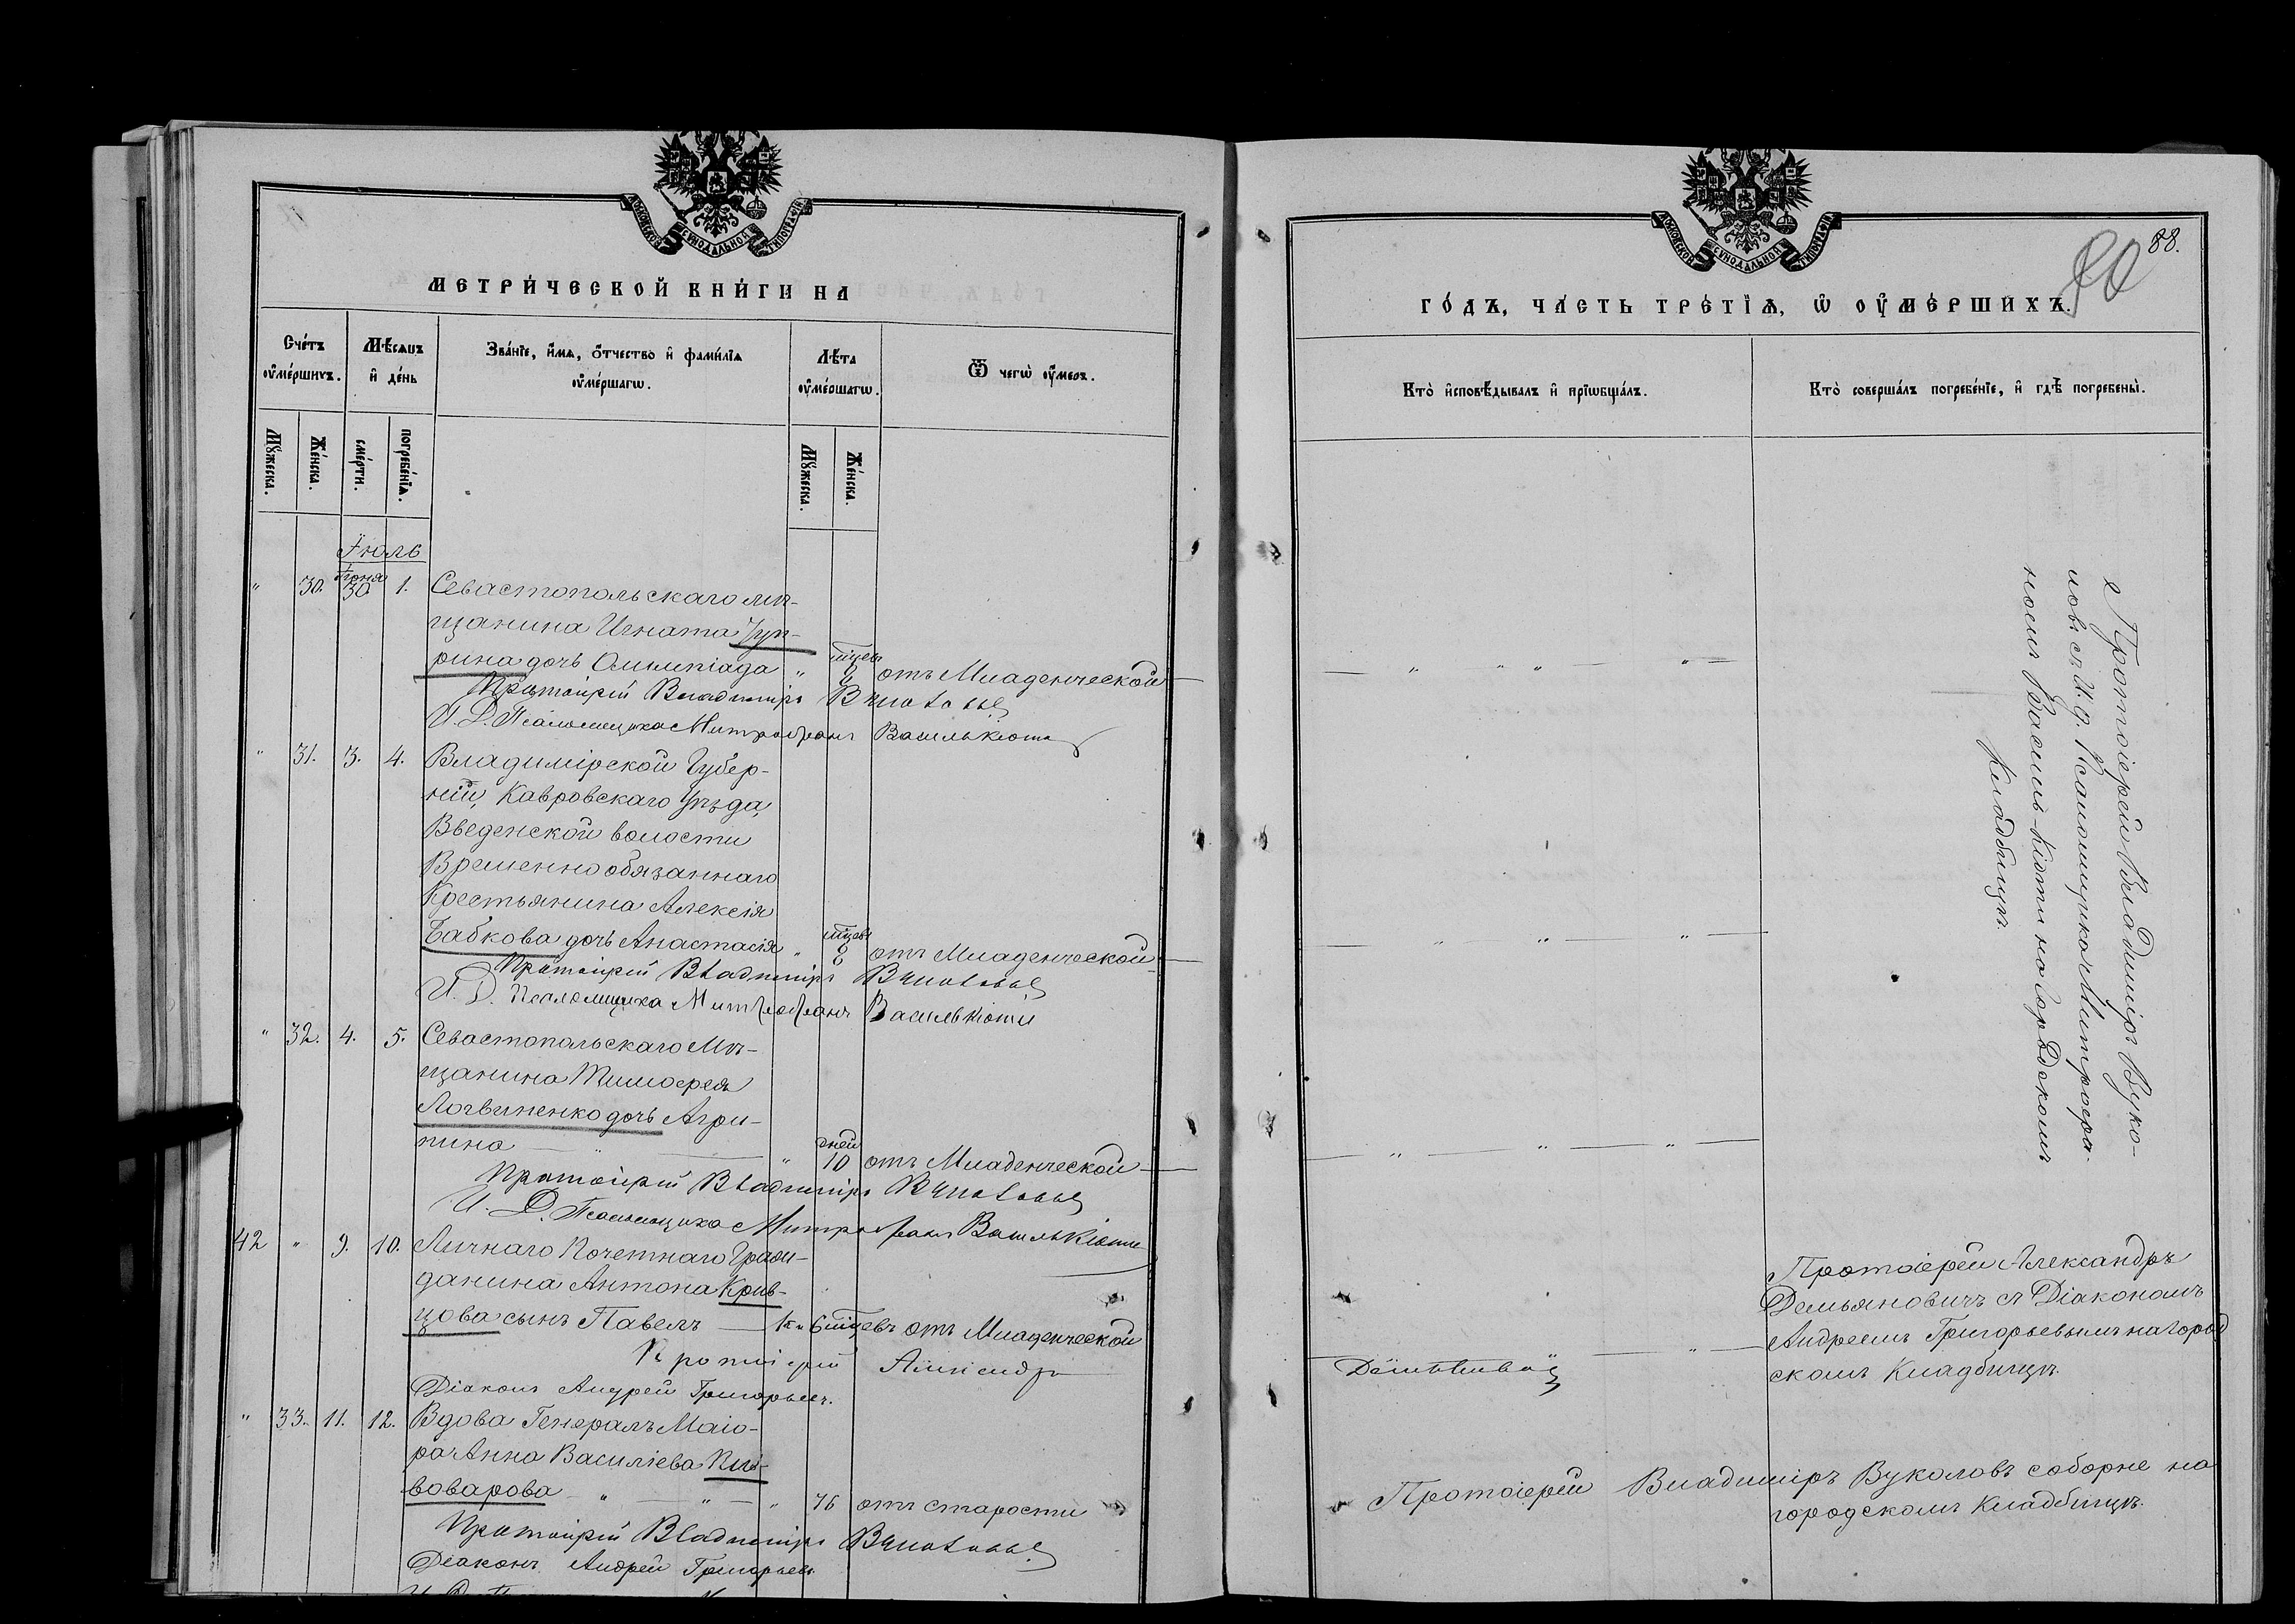 МОСКОВСКОЙ СѴНОДАЛЬНОЙ ТИПОГРАФІИ
МЕТРИ́ЧЕСКОЙ КНИ́ГИ НА
Сче́тъ ᲂу҆ме́ршихъ.
Мѣ́сѧцъ и҆ де́нь
Зва́нїе, и҆́мѧ, ѻ҆́тчество и҆ фами́лїѧ ᲂу҆ме́ршагѡ.
Лѣ́та ᲂу҆ме́ршагѡ.
Ѿ чегѡ̀ ᲂу҆́меръ.
Мꙋ́жеска.
Же́нска.
сме́рти.
погребе́нїѧ.
Мꙋ́жеска.
Же́нска.
Іюль
" 30. Іюня 30 1. Севастопольскаго мѣ-
щанина Игната
рина дочь Олимпіада " мцевъ отъ Младенческой
Протоіерей Владиміръ Вуколовъ
И. Д. Псаломщика Митрофанъ Василькіоти
" 31. 3. 4. Владимірской Губер-
ніи, Кавровскаго Уѣзда,
Введенской волости
Временнообязаннаго
Крестьянина Алексія
Бабкова дочь Анастасія " мцевъ 8 отъ Младенческой
Протоіерей Владиміръ Вуколовъ
И. Д. Псаломщика Митрофанъ Василькіоти
" 32. 4. 5. Севастопольскаго Мѣ-
щанина Тимофея
Логвиненко дочь Агри-
пина " " дней 10 отъ Младенческой
Протоіерей Владиміръ Вуколовъ
И. Д. Псаломщика Митрофанъ Василькіоти
42 " 9. 10. Личнаго Почетнаго Граж-
данина Антона Крив-
цова сынъ Павелъ 6 мцевъ отъ Младенческой
Протоіерей Александръ
Діаконъ Андрей Григорьевъ.
" 33. 11. 12. Вдова Генералъ Маіо-
ра Анна Василіева Пи-
воварова " " " 76 отъ старости
Протоіерей Владиміръ Вуколовъ
Діаконъ Андрей Григорьевъ
МОСКОВСКОЙ СѴНОДАЛЬНОЙ ТИПОГРАФІИ
88.
ГО́ДЪ, ЧА́СТЬ ТРЕ́ТЇѦ, Ѡ҆ ОУ҆МЕ́РШИХЪ.
Кто̀ и҆сповѣ́дывалъ и҆ прїѡбща́лъ.
Кто̀ соверша́лъ погребе́нїе, и҆ гдѣ̀ погребены̀.
Протоіерей Владиміръ Вуко-
ловъ съ И. д. Псаломщика Митрофа-
номъ Василь-Кіоти на городскомъ
Кладбищѣ.
Протоіерей Александръ
Демьяновичъ съ Діакономъ
Андреемъ Григорьевымъ на город
скомъ Кладбищѣ.
Протоіерей Владиміръ Вуколовъ соборне на
городскомъ Кладбищѣ.